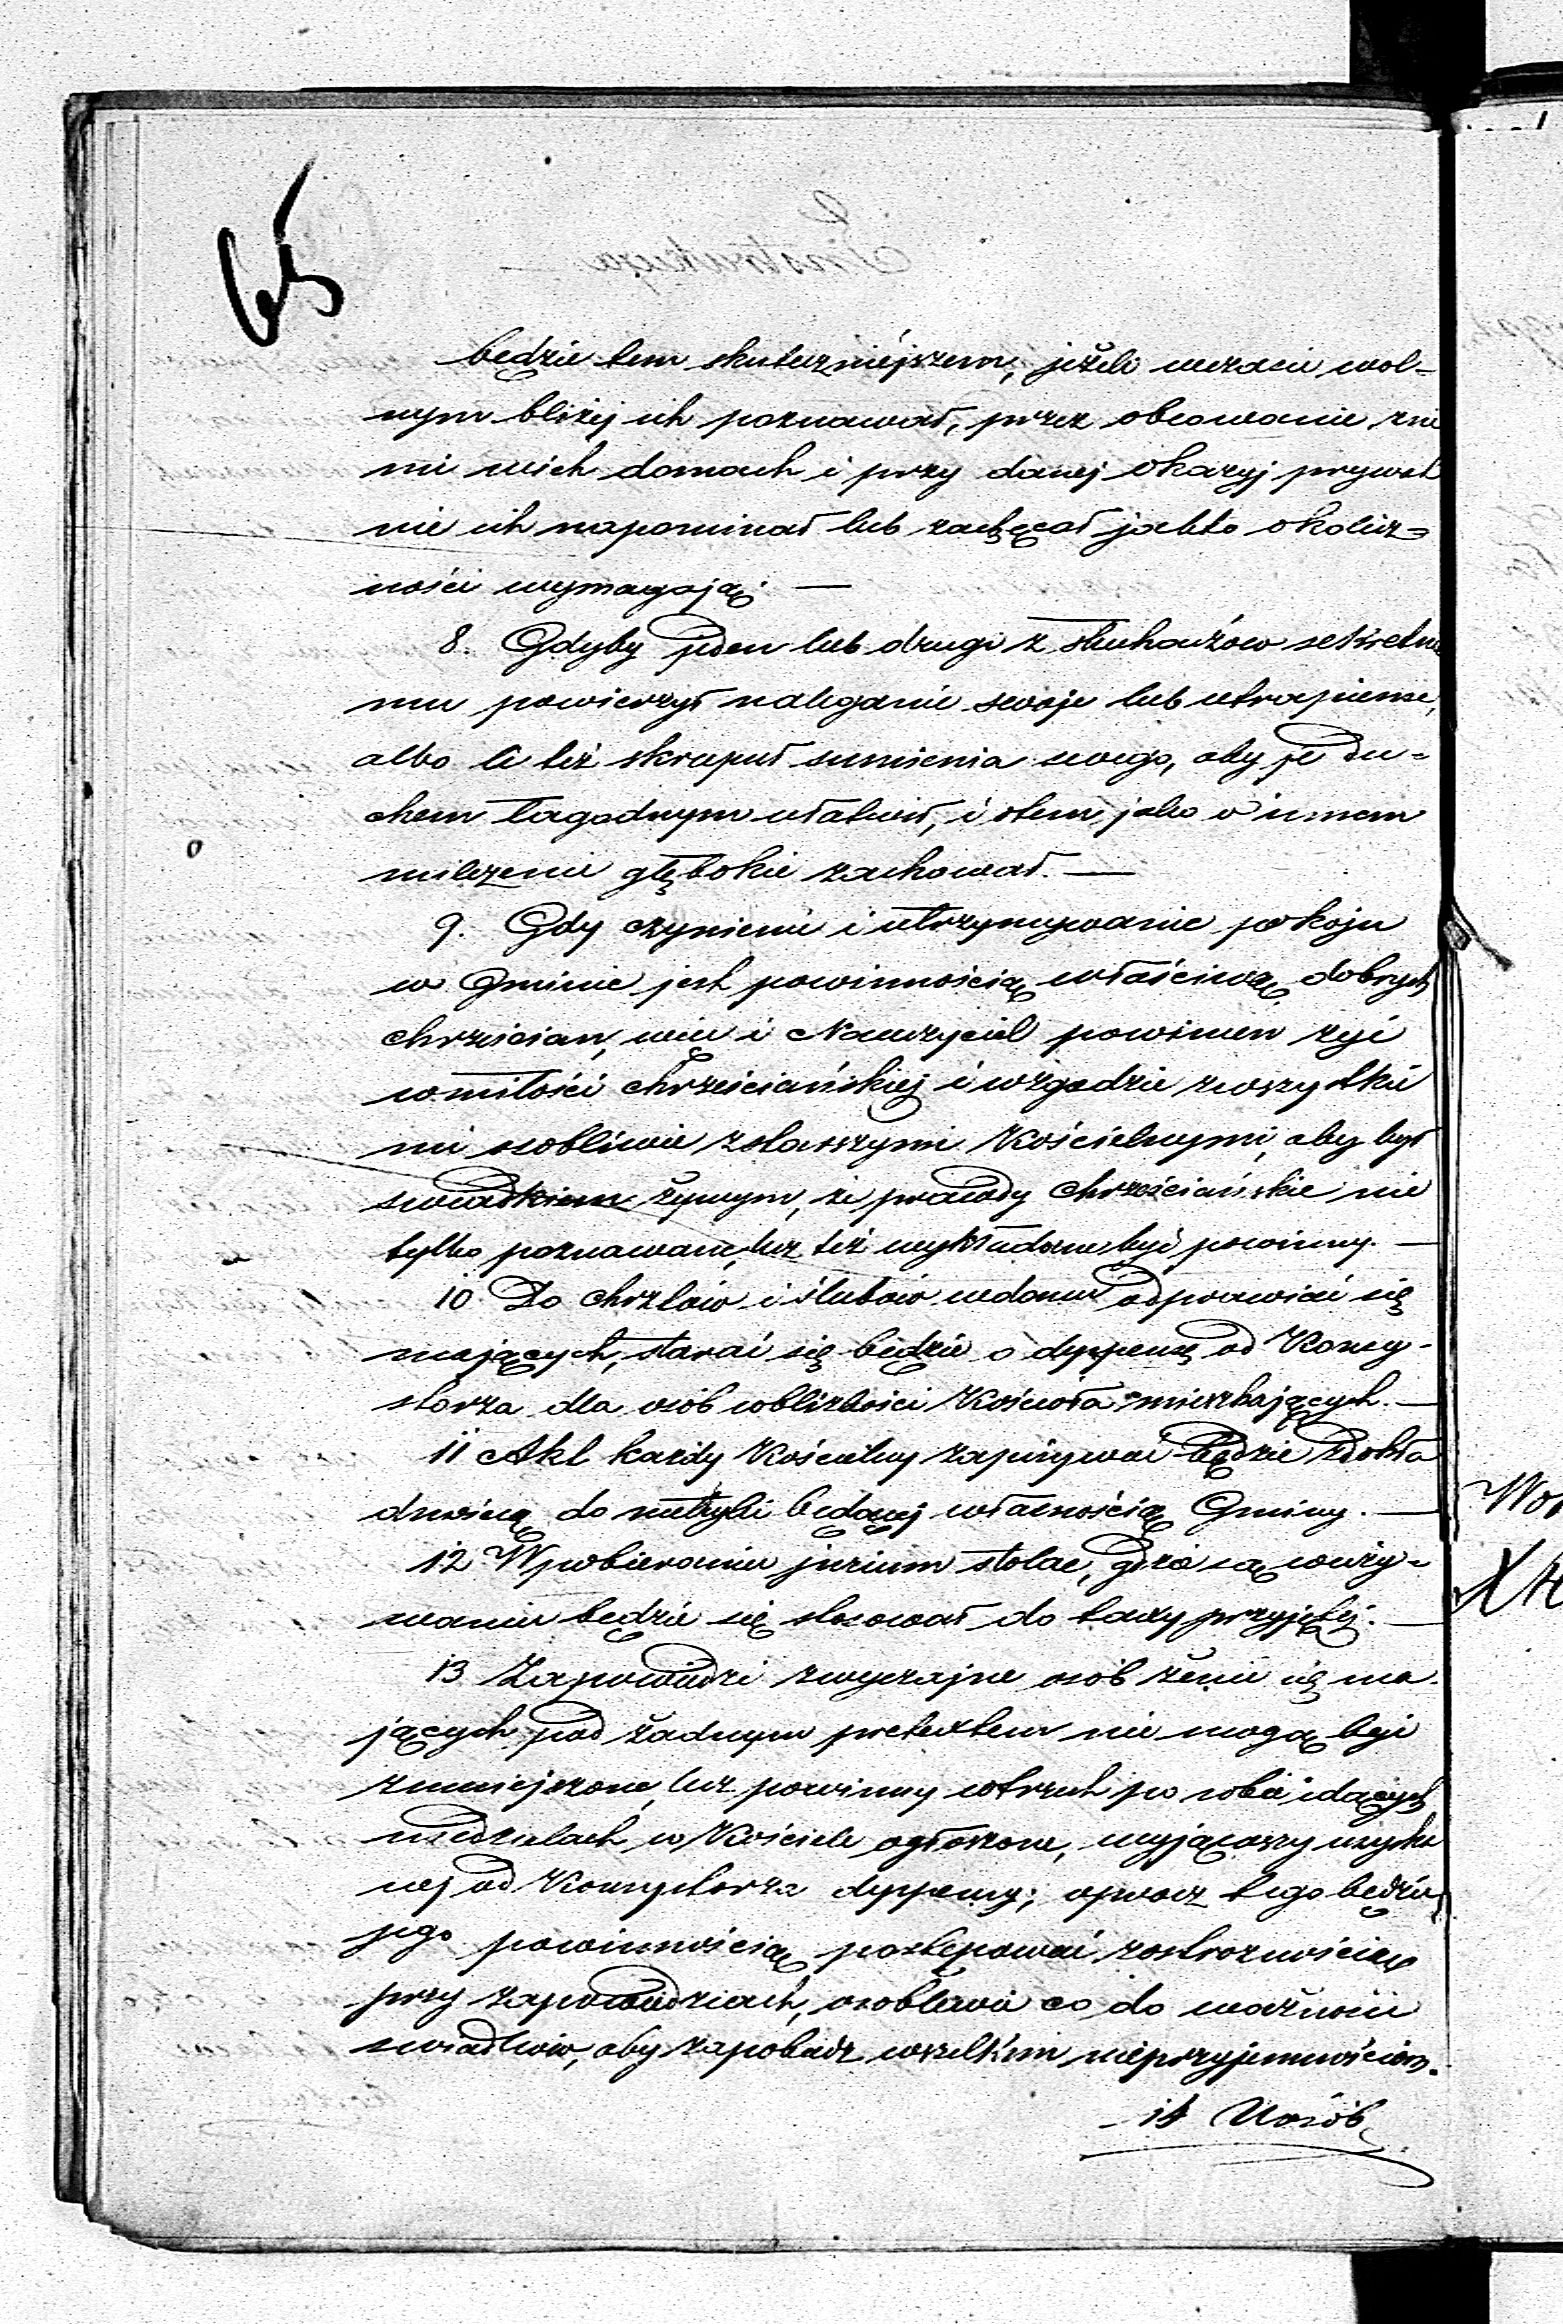 65
będzie tem skuteczniéjszem, jeżeli wczasie wol-
nym bliżej ich poznawał, przez obcowanie zni
mi wich domach i przy danej okazyj prywat
nie ich napominał lub zachęcał jakto okolicz-
ności wymagają. —
8. Gdyby jeden lub drugi z słuchaczów sekretnie
mu powierzył naleganie swoje lub utrapienie,
albo li też skrupuł sumienia swego, aby je Du-
chem łagodnym ułatwił, i otem jako o innem
milczenie głębokie zachował. —
9. Gdy czynienie i utrzymywanie pokoju
w Gminie jest powinnością właściwą dobrych
chrześcian, więc i Nauczyciel powinien żyć
wmiłości chrześciańskiej i wzgodzie zwszystkie
mi osobliwie zstarszymi Kościelnymi, aby był
swiadkiem żywym, że prawdy chrześciańskie nie
tylko poznawane, lecz też wykładane być powinny. —
10. Do chrztów i ślubów wdomu odprawiać się
mających, starać się będzie o dyspensę od Konsy-
storza dla osób wblizkości Kościoła mieszkających. —
11 Akt każdy Kościelny zapisywać będzie zdokła
dnością do metryki będącej własnością Gminy. —
12 W pobieraniu jurium stolae, gdzie są wuży-
waniu będzie się stosował do taxy przyjętej. —
13 Zapowiedzi zwyczajne osób żenić się ma-
jących pod żadnym pretextem nie mogą być
zmniejszone, lecz powinny wtrzech po sobie idących
niedzielach w Kościele ogłoszone, wyjąwszy uzyska
nej od Konsystorza dyspensy; oprócz tego będzie
jego powinnością postępować zostrożnością
przy zapowiedziach, osobliwie co do ważności
swiadków, aby zapobiedz wszelkim nieprzyjemnościom.
14 Uosób